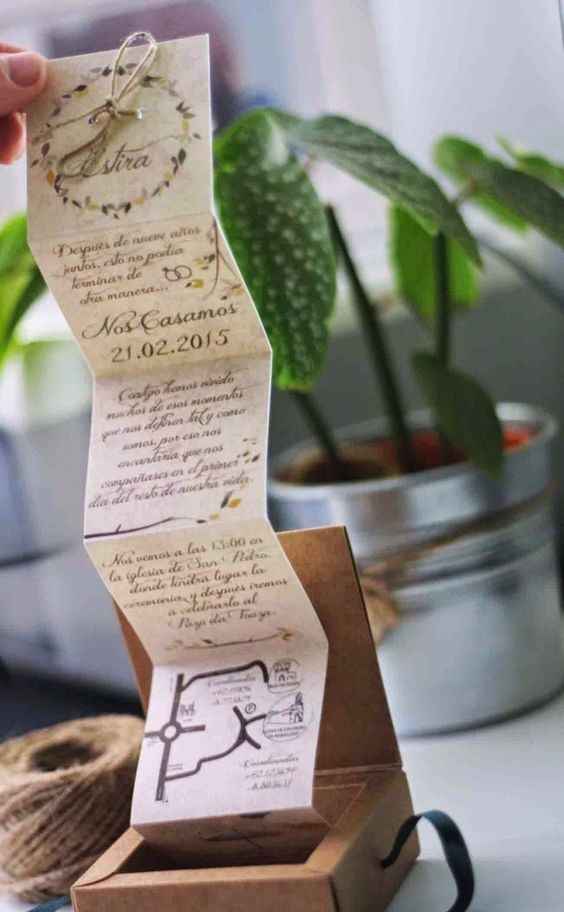 Estira
Después de nueve años
juntos, esto no podía
terminar de
otra manera...
Nos Casamos
21.02.2015
Contigo hemos vivido
muchos de esos momentos
que nos definen tal y como
somos, por eso nos
encantaría que nos
compañases en el primer
día del resto de nuestra vida.
Nos vemos a las 13:00 en
la iglesia de San Pedro,
donde tendrá lugar la
ceremonia, y después iremos
a celebrarlo al
Pazo da Touza.
Coordenadas
P
Coordenadas